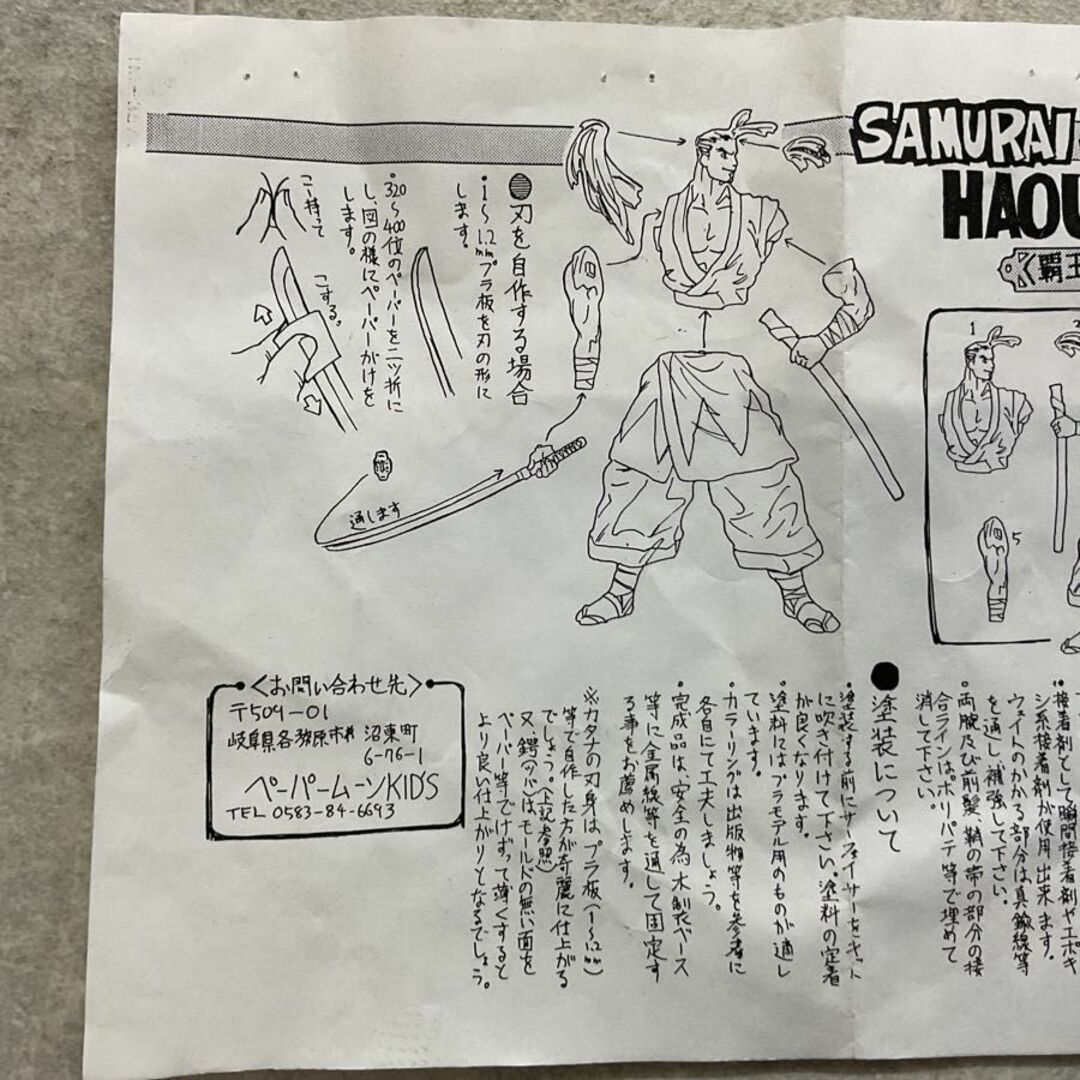 SAMURAI
HAOU
覇王
1
5
●刃を自作する場合
・1〜1.2mmプラ板を刃の形に
します。
・320〜400位のペーパーを二ッ折に
し、図の様にペーパーがけを
します。
こー持って
こする。
通します
接着剤として瞬間接着剤やエポキ
シ系接着剤が使用出来ます。
ウェイトのかかる部分は真鍮線等
を通し、補強して下さい。
・両腕及び前髪、鞘の帯の部分の接
合ラインはポリパテ等で埋めて
消して下さい。
●塗装について
・塗装する前にサーフェイサーをキット
に吹き付けて下さい。塗料の定着
が良くなります。
・塗料にはプラモデル用のものが適し
ています。
・カラーリングは出版物等を参考に
各自にて工夫しましょう。
・完成品は、安全の為、木製ベース
等に金属線等を通して固定す
る事をお薦めします。
※カタナの刃身はプラ板(1〜1.2mm)
等で自作した方が奇麗に仕上がる
でしょう。(上記参照)
又、鍔(ツバ)はモールドの無い面を
ペーパー等でけずって薄くすると
より良い仕上がりとなるでしょう。
<お問い合わせ先>
〒509-01
岐阜県各務原市 沼東町
6-76-1
ペーパームーンKID'S
TEL 0583-84-6693